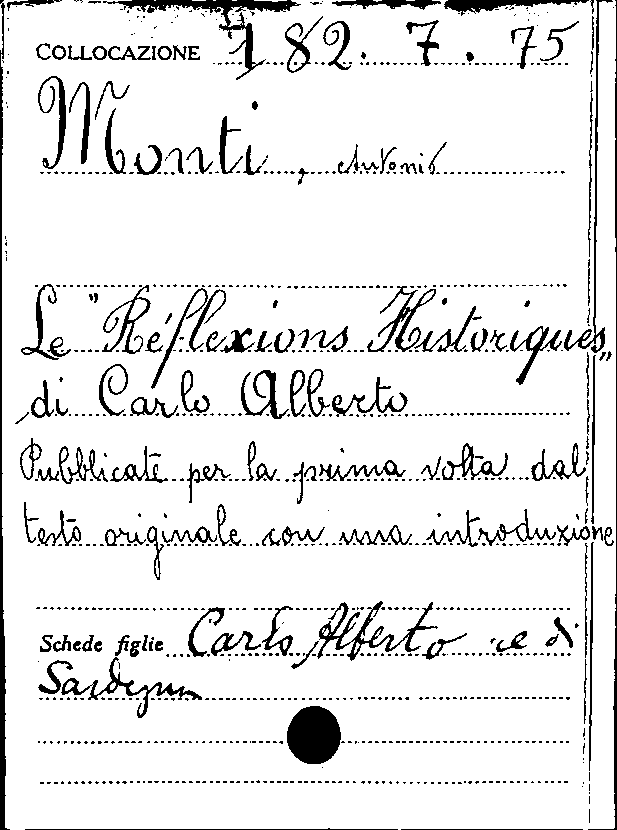 COLLOCAZIONE 182. 7. 75
Monti, Antonio
Le "Réflexions Historiques„
di Carlo Alberto
Pubblicate per la prima volta dal
testo originale con una introduzione
Schede figlie Carlo Alberto re di
Sardegna